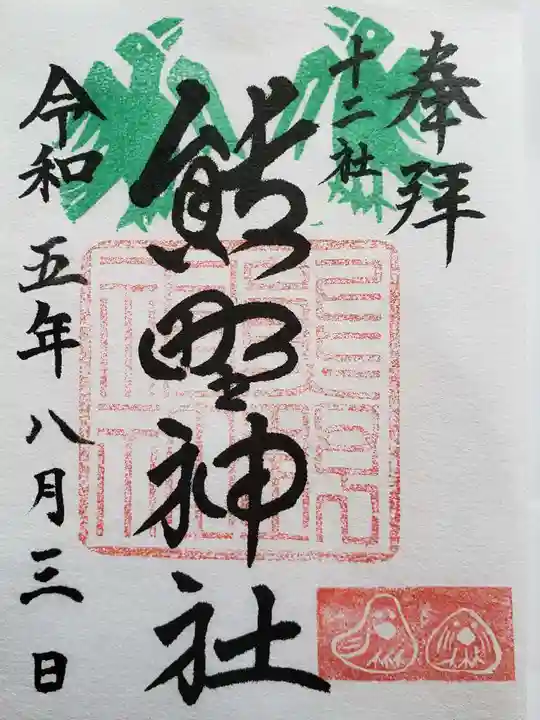 奉拝
十二社
熊野神社
令和五年八月三日